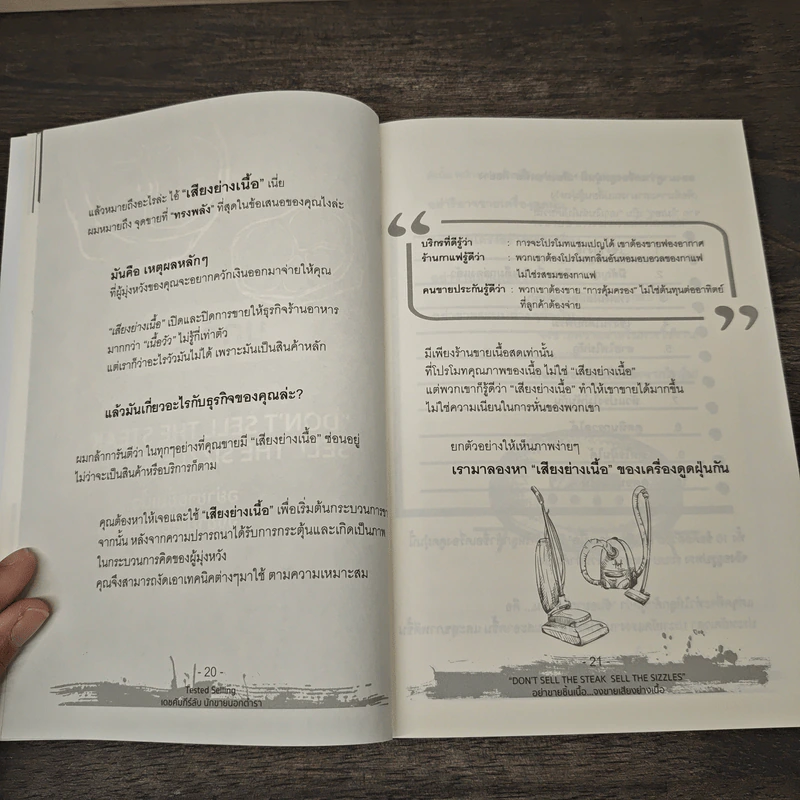 แล้วหมายถึงอะไรล่ะ ไอ้ "เสียงย่างเนื้อ" เนี่ย
ผมหมายถึง จุดขายที่ "ทรงพลัง" ที่สุดในข้อเสนอของคุณไงล่ะ
มันคือ เหตุผลหลักๆ
ที่ผู้มุ่งหวังของคุณจะอยากควักเงินออกมาจ่ายให้คุณ
"เสียงย่างเนื้อ" เปิดและปิดการขายให้ธุรกิจร้านอาหาร
มากกว่า "เนื้อวัว" ไม่รู้กี่เท่าตัว
แต่เราก็ว่าอะไรวัวมันไม่ได้ เพราะมันเป็นสินค้าหลัก
แล้วมันเกี่ยวอะไรกับธุรกิจของคุณล่ะ?
ผมกล้าการันตีว่า ในทุกๆอย่างที่คุณขายมี "เสียงย่างเนื้อ" ซ่อนอยู่
ไม่ว่าจะเป็นสินค้าหรือบริการก็ตาม
คุณต้องหาให้เจอและใช้ "เสียงย่างเนื้อ" เพื่อเริ่มต้นกระบวนการ
จากนั้น หลังจากความปรารถนาได้รับการกระตุ้นและเกิดเป็นภาพ
ในกระบวนการคิดของผู้มุ่งหวัง
คุณจึงสามารถงัดเอาเทคนิคต่างๆมาใช้ ตามความเหมาะสม
- 20 -
Tested Selling
เดชคัมภีร์ลับ นักขายนอกตำรา
บริกรที่ดีรู้ว่า : การจะโปรโมทแชมเปญได้ เขาต้องขายฟองอากาศ
ร้านกาแฟรู้ดีว่า : พวกเขาต้องโปรโมทกลิ่นอันหอมอบอวลของกาแฟ
ไม่ใช่รสชมของกาแฟ
คนขายประกันรู้ดีว่า : พวกเขาต้องขาย "การคุ้มครอง" ไม่ใช่ต้นทุนต่ออาทิตย์
ที่ลูกค้าต้องจ่าย
มีเพียงร้านขายเนื้อสดเท่านั้น
ที่โปรโมทคุณภาพของเนื้อ ไม่ใช่ "เสียงย่างเนื้อ"
แต่พวกเขาก็รู้ดีว่า "เสียงย่างเนื้อ" ทำให้เขาขายได้มากขึ้น
ไม่ใช่ความเนียนในการหั่นของพวกเขา
ยกตัวอย่างให้เห็นภาพง่ายๆ
เรามาลองหา "เสียงย่างเนื้อ" ของเครื่องดูดฝุ่นกัน
- 21 -
"DON'T SELL THE STEAK SELL THE SIZZLES"
อย่าขายชิ้นเนื้อ...จงขายเสียงย่างเนื้อ